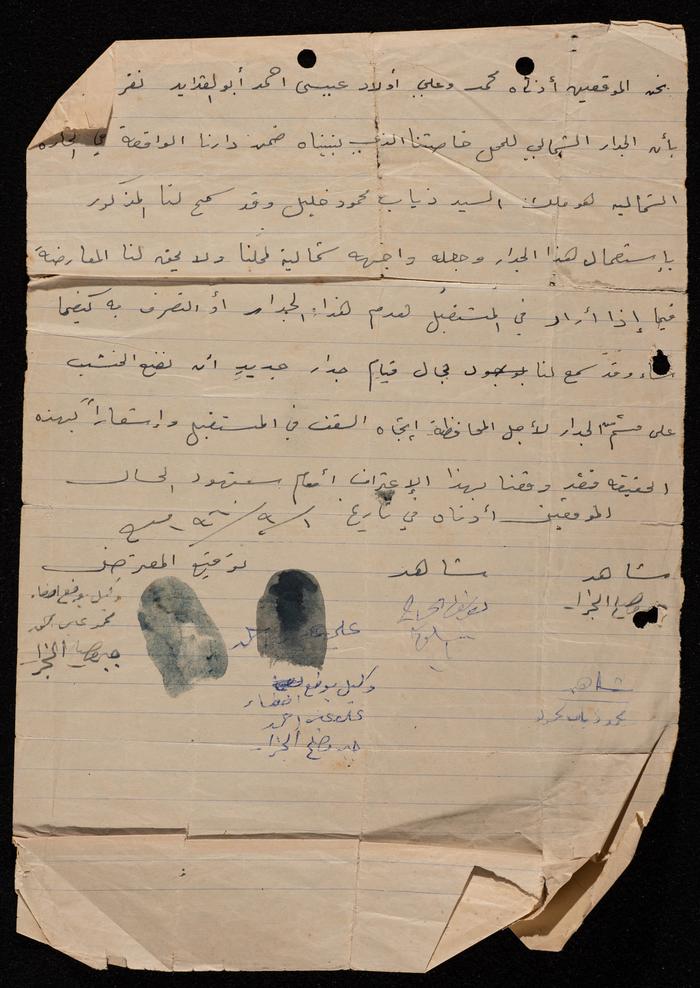 نحن الموقعين أدناه محمد وعلي أولاد عيسى احمد أبو الفدايد نقر
بأن الجدار الشمالي للمحل خاصتنا الذي بنيناه ضمن دارنا الواقعة في الحاره
الشماليه هو ملك السيد ذياب محمود خليل وقد سمح لنا المذكور
بإستعمال هذا الجدار وجعله واجهه شمالية لمحلنا ولا يحق لنا المعارضة
فيما إذا أراد في المستقبل هدم هذا الجدار أو التصرف به كيفما
شاء وقد سمح لنا بوجود مجال قيام جدار جديد أن نضع الخشب
على الجدار لأجل المحافظة إتجاه السقف في المستقبل وإشعاراً بهذه
الحقيقه فقد وقعنا بهذا الإعتراف أمام شهود الحال
الموقعين أدناه في تاريخ
شاهد شاهد توقيع المعترضين
الجزار
وكيل بوضع امضاء
محمد عيسى احمد
الجزار
علي
وكيل بوضع
امضاء
علي عيسى احمد
الجزار
شاهد
محمود ذياب محمود